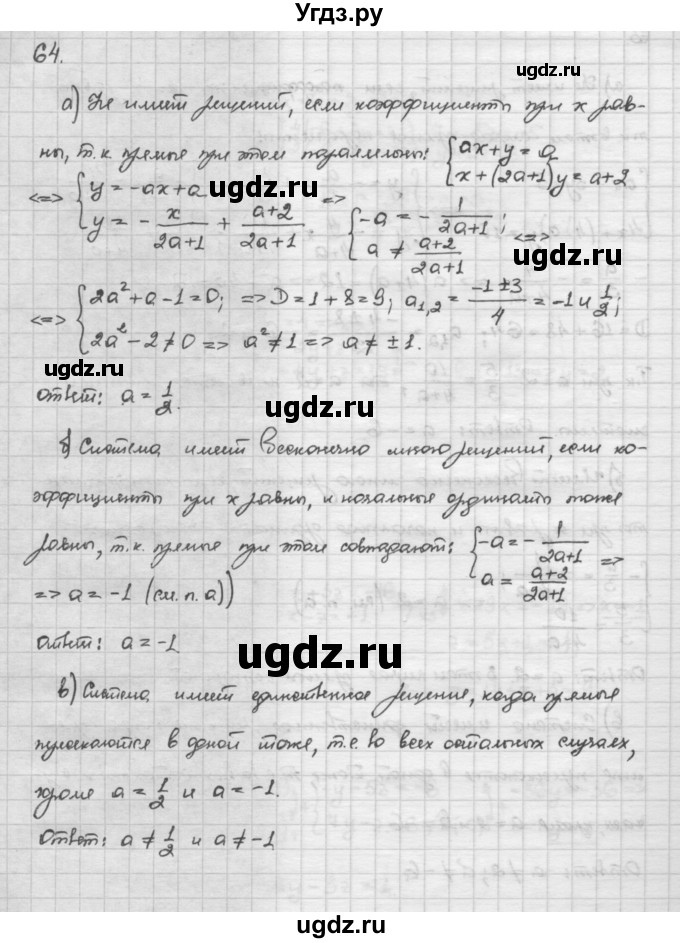 Угдз.ру
64.
ugdz.ru
а) Не имеет решений, если коэффициенты при x рав-
ны, т.к прямые при этом параллельны: { ax+y=a
x+(2a+1)y=a+2
<=> { y=-ax+a
y=-x/(2a+1) + (a+2)/(2a+1) => { -a=-1/(2a+1);
a≠(a+2)/(2a+1) <=>
ugdz.ru
ugdz.ru
<=> { 2a²+a-1=0; => D=1+8=9; a₁,₂=(-1±3)/4=-1 и 1/2;
2a²-2≠0 => a²≠1 => a≠±1.
ugdz.ru
Ответ: a=1/2.
ugdz.ru
б) Система имеет бесконечно много решений, если ко-
эффициенты при x равны, и начальные ординаты тоже
равны, т.к. прямые при этом совпадают: { -a=-1/(2a+1)
a=(a+2)/(2a+1) =>
ugdz.ru
=> a=-1 (см. п. а))
Ответ: a=-1
ugdz.ru
в) Система имеет единственное решение, когда прямые
пересекаются в одной точке, т.е. во всех остальных случаях,
кроме a=1/2 и a=-1.
ugdz.ru
Ответ: a≠1/2 и a≠-1
ugdz.ru
ugdz.ru